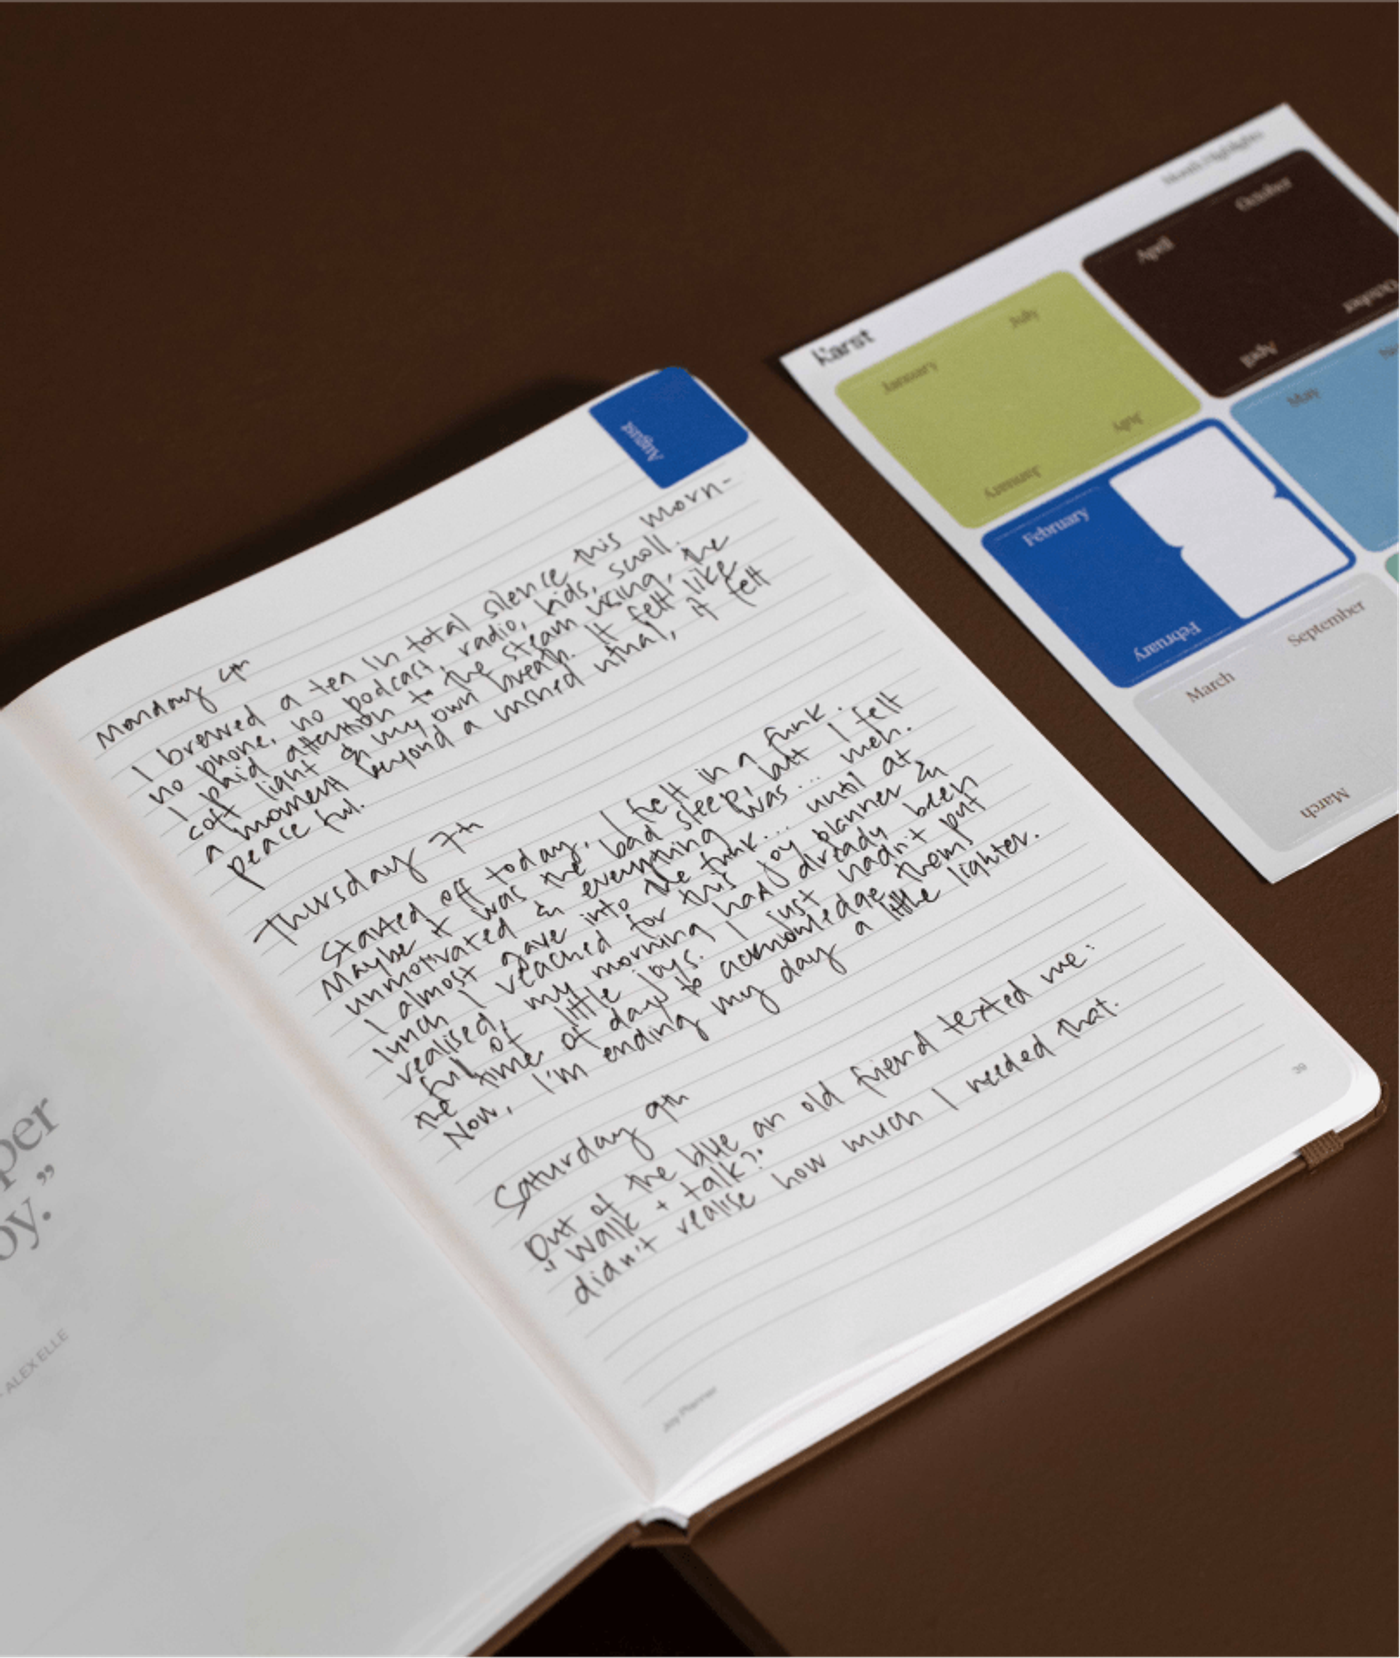 per
oy.”
ALEX ELLE
August
Monday 4th
I brewed a tea in total silence this morn-
no phone, no podcast, radio, kids, scroll.
I paid attention to the steam rising, the
soft light & my own breath. It felt like
a moment beyond a ritual, it felt
peaceful.
Thursday 7th
Started off today, I felt in a funk.
Maybe it was the bad sleep, but I felt
unmotivated & everything was... meh.
I almost gave into the funk... until at
lunch I reached for this joy planner &
realised, my morning had already been
full of little joys. I just hadn't put
the time of day to acknowledge them!
Now, I'm ending my day a little lighter.
Saturday 9th
Out of the blue an old friend texted me:
"walk + talk?"
didn't realise how much I needed that.
Joy Planner
39
Karst
Month Highlights
January
July
July
January
April
October
October
April
February
February
May
March
September
March